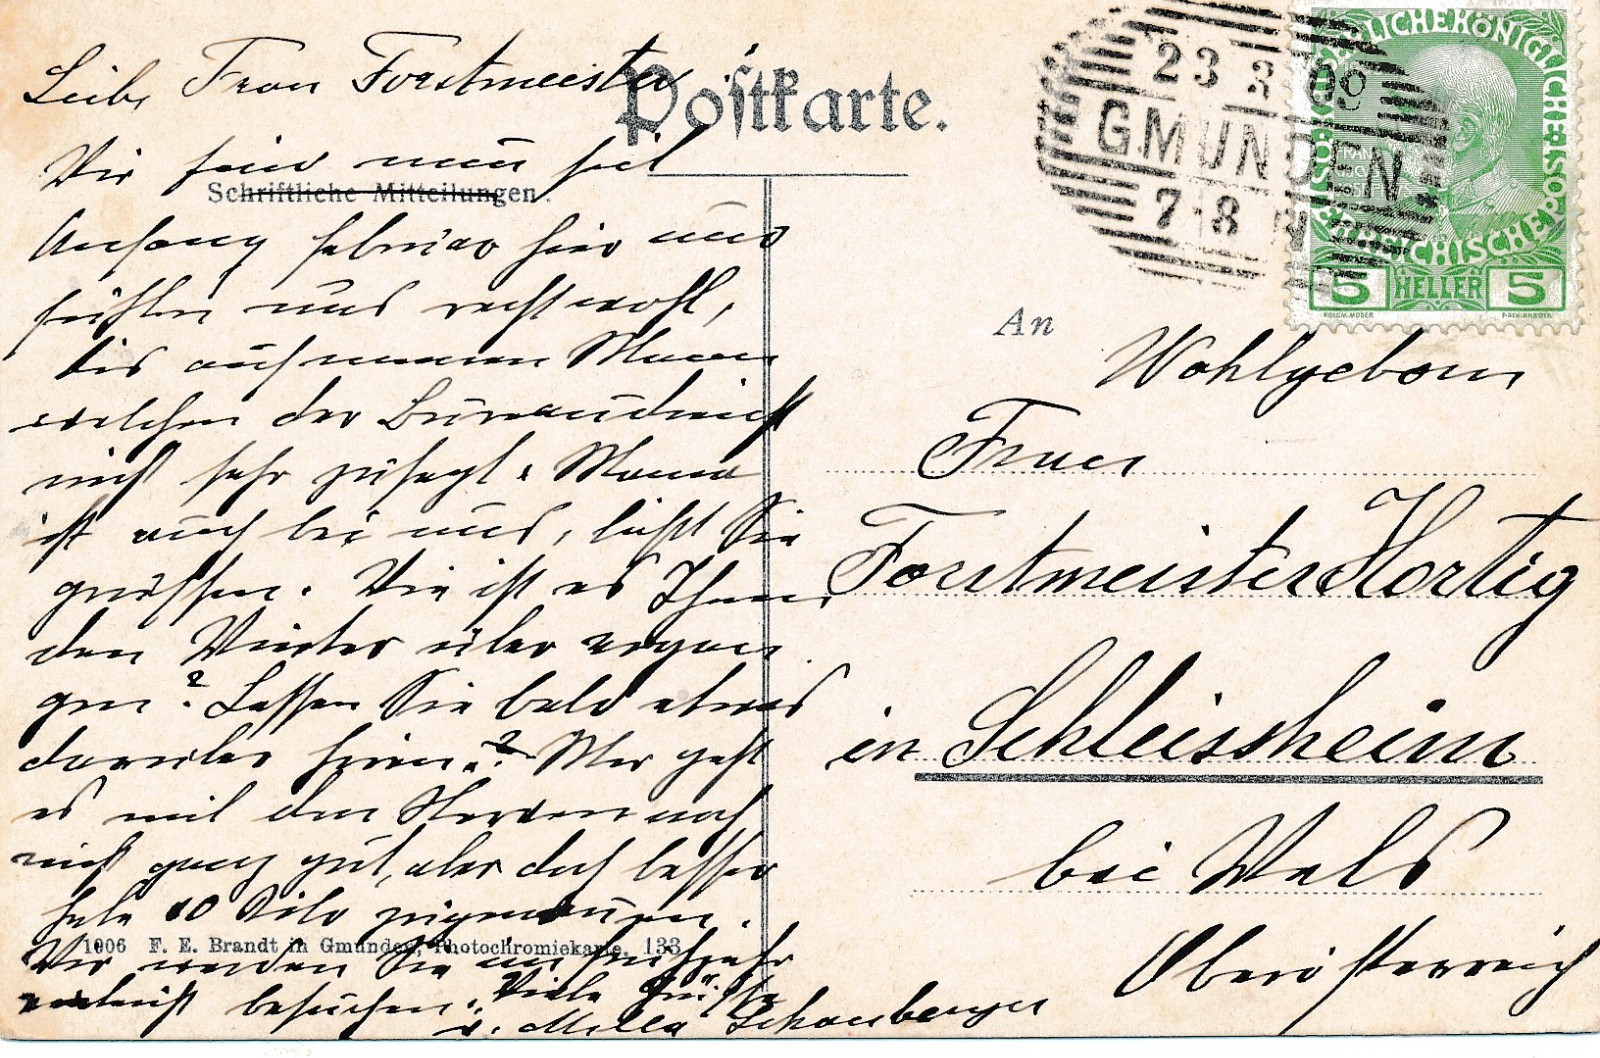 Postkarte.
Schriftliche Mitteilungen.
Liebe Frau Forstmeister
Wir sind nun seit
Anfang februar hier und
fühlen uns recht wohl,
bis auf meinen Mann
welchen der Bureaudienst
nicht sehr zusagt. Mama
ist auch bei uns, läßt Sie
grüssen. Wie ist es Ihnen
den Winter über ergan
gen? Lassen Sie bald etwas
darüber hören? Mir geht
es mit den Nerven noch
nicht ganz gut, aber doch besser
habe 10 Kilo zugenommen.
Wir werden Sie im frühjahr
vielleicht besuchen. Viele Grüße
v. Mella Schamberger
1906 F. E. Brandt in Gmunden, Photochromiekarte. 133
23 3 09
GMUNDEN
7-8 N
KAISERLICHE KÖNIGLICHE ÖSTERREICHISCHE
5 HELLER 5
KOLOM. MOSER
An
Wohlgeborn
Frau
Forstmeister Hortig
in Schleissheim
bei Wels
Oberösterreich